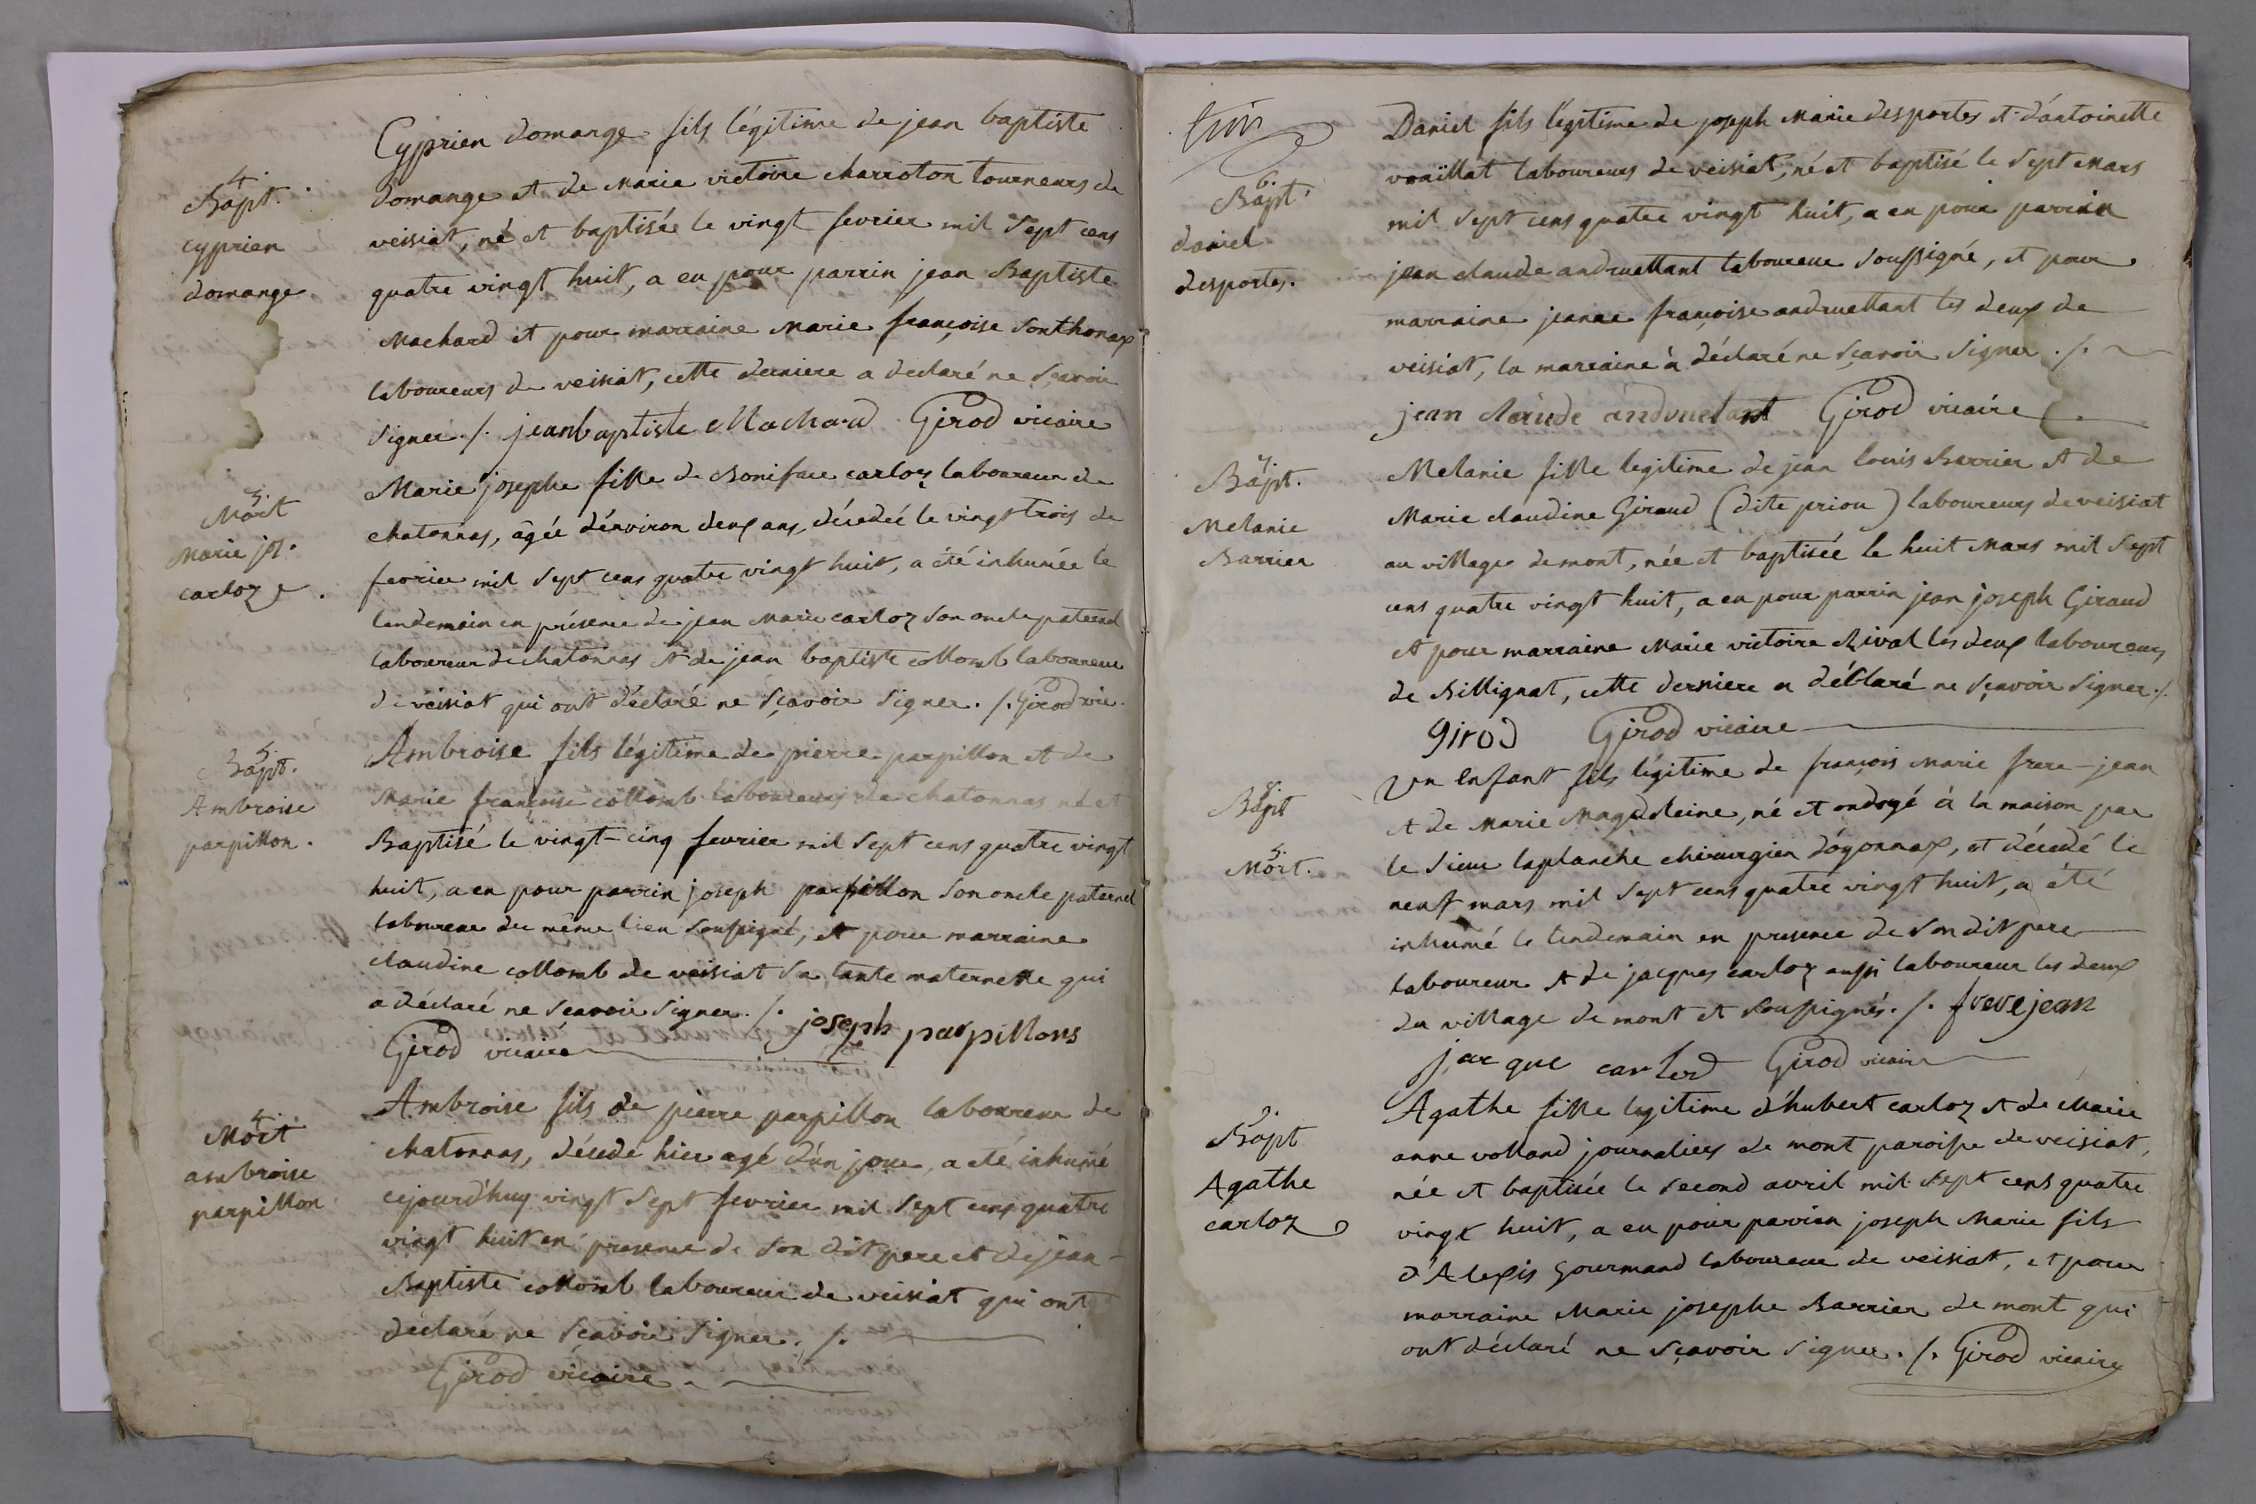 4.
Bapt.
cyprien
domange
Cyprien domange fils légitime de jean baptiste
domange et de marie victoire charroton tourneurs de
veisiat, né et baptisée le vingt fevrier mil sept cens
quatre vingt huit, a eu pour parrin jean Baptiste
Machard et pour marraine marie françoise Sonthonax
laboureurs de veisiat, cette derniere a declaré ne sçavoir
signer ./. jeanbaptiste Machard Girod vicaire
Mort
Marie jph.
carloz
Marie josephe fille de Boniface carloz laboureur de
chatonnas, âgée d'environ deux ans, décedeé le vingt trois de
fevrier mil sept cens quatre vingt huit, a été inhumée le
lendemain en présence de jean Marie carloz son oncle paternel
laboureur de chatonnas et de jean baptiste collomb laboureur
de veisiat qui ont déclaré ne sçavoir signer. /. Girod vic.
5.
Bapt.
Ambroise
parpillon.
Ambroise fils légitime de pierre parpillon et de
Marie françoise collomb laboureurs de chatonnas né et
Baptisé le vingt-cinq fevrier mil sept cens quatre vingt
huit, a eu pour parrin joseph parpillon son oncle paternel
laboureur du même lieu soussigné, et pour marraine
claudine collomb de veisiat sa tante maternelle qui
a déclaré ne sçavoir signer. /. joseph parpillons
Girod vicaire
4.
Mort
ambroise
parpillon
Ambroise fils de pierre parpillon laboureur de
chatonnas, décedé hier agé d'un jour, a été inhumé
cejourd'huy vingt sept fevrier mil sept cens quatre
vingt huit en presence de son dit pere et de jean-
Baptiste collomb laboureur de veisiat qui ont
déclaré ne sçavoir signer. /.
Girod vicaire
6.
Bapt.
daniel
desportes.
Daniel fils légitime de joseph Marie desportes et d'antoinette
vouillat laboureurs de veisiat, né et baptisé le sept Mars
mil sept cens quatre vingt huit, a eu pour parrin
jean claude andruettant laboureur soussigné, et pour
marraine jeanne françoise andruettant les deux de
veisiat, la marraine à déclaré ne sçavoir signer ./.
jean claude andruetant Girod vicaire
7
Bapt.
Melanie
Barrier
Melanie fille legitime de jean louis Barrier et de
Marie claudine Giraud (dite priou) laboureurs de veisiat
au village de mont, née et baptisée le huit Mars mil sept
cens quatre vingt huit, a eu pour parrin jean joseph Giraud
et pour marraine Marie victoire Rival les deux laboureurs
de Billignat, cette derniere a déclaré ne sçavoir signer /.
Girod Girod vicaire
8
Bapt
5.
Mort.
Un enfant fils légitime de françois Marie frere-jean
et de Marie Magdeleine, né et ondoyé à la maison par
le sieur laplanche chirurgien d'oyonnax, et décedé le
neuf mars mil sept cens quatre vingt huit, a été
inhumé le lendemain en presence de son dit pere
laboureur et de jacques carloz aussi laboureur les deux
du village de mont et soussignés. /. frerejean
jacque carlod Girod vicaire
9.
Bapt
Agathe
carloz
Agathe fille legitime d'hubert carloz et de Marie
anne volland journaliers de mont paroisse de veisiat,
née et baptisée le second avril mil sept cens quatre
vingt huit, a eu pour parrien joseph Marie fils
d'Alexis Gourmand laboureur de veisiat, et pour
marraine Marie josephe Barrier de mont qui
ont déclaré ne sçavoir signer. /. Girod vicaire